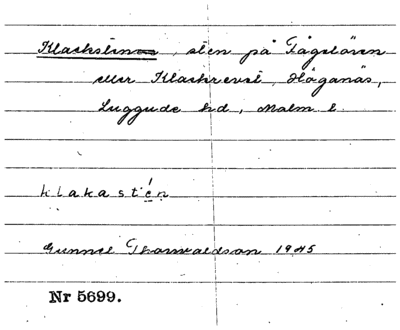 Klackstenen, sten på Fågelören
eller Klackrevet, Höganäs,
Luggude hd, Malm l
klakastén
Gunnel Thorwaldson 1945
Nr 5699.